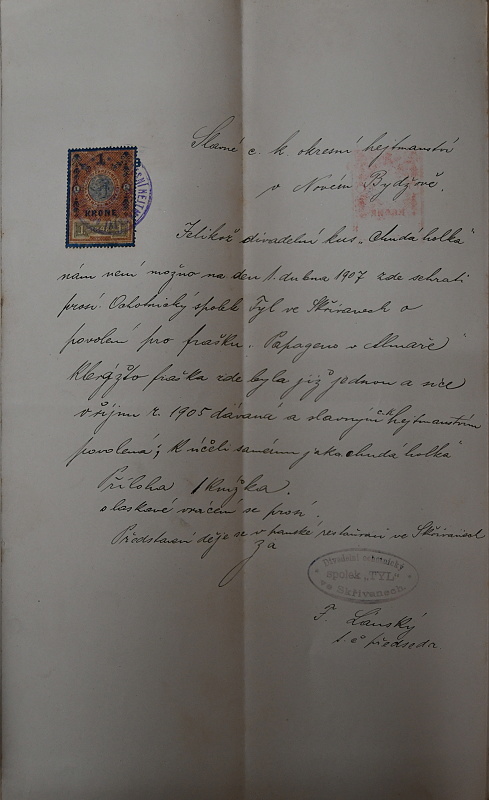 Slavné c. k. okresní hejtmanství
v Novém Bydžově.
1
KRONE
Jelikož divadelní kus „Chudá holka"
nám není možno na den 1. dubna 1907 zde sehrati
prosí Ochotnický spolek Tyl ve Skřivanech o
povolení pro frašku „Papageno v Almaře"
kterážto fraška zde byla již jednou a sice
v říjnu r. 1905 dávaná a slavným c. k. hejtmanstvím
povolená; k účeli samému jako „chudá holka"
Příloha 1 knížka.
o laskavé vrácení se prosí.
Představení děje se v panské restauraci ve Skřivanech
Za
Divadelní ochotnický
spolek „TYL"
ve Skřivanech.
F. Lánský
t. č. předseda.